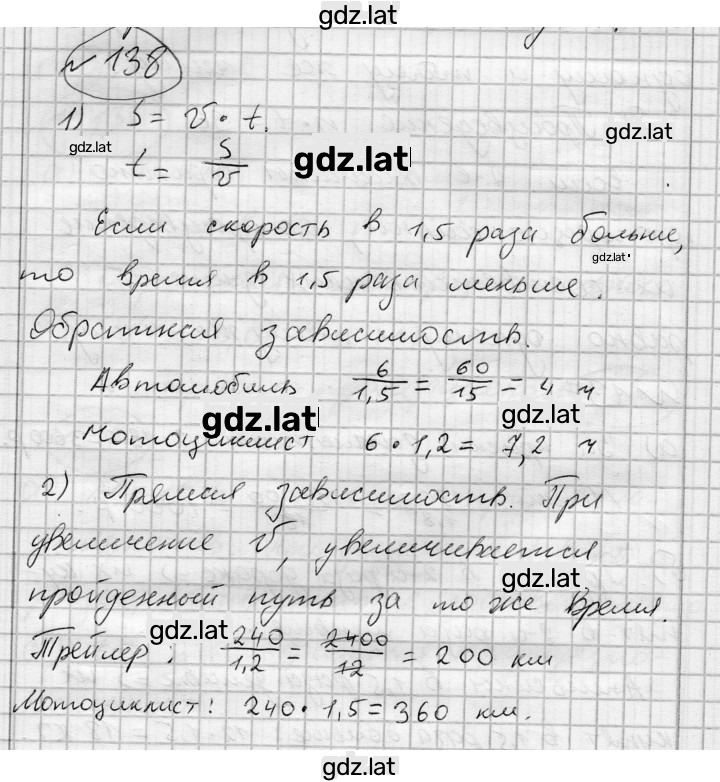 gdz.lat
№ 138
1) S = v · t.
gdz.lat
gdz.lat
t = S/v
gdz.lat
Если скорость в 1,5 раза больше,
gdz.lat
то время в 1,5 раза меньше.
Обратная зависимость.
Автомобиль 6/1,5 = 60/15 = 4 ч
gdz.lat
gdz.lat
Мотоциклист 6 · 1,2 = 7,2 ч
2) Прямая зависимость. При
увеличение v, увеличивается
gdz.lat
пройденный путь за то же время.
gdz.lat
Трейлер: 240/1,2 = 2400/12 = 200 км
Мотоциклист: 240 · 1,5 = 360 км.
gdz.lat